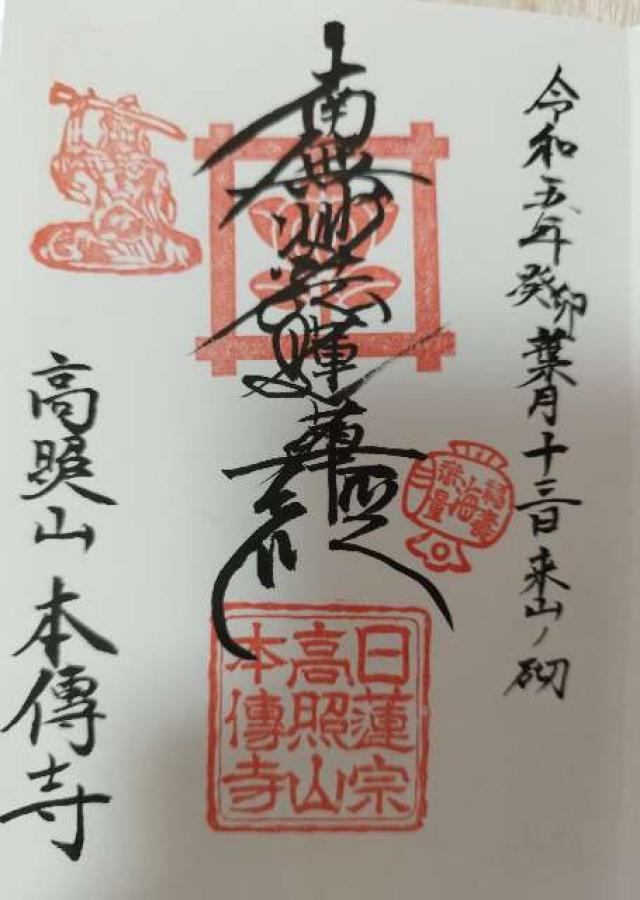 令和五年癸卯葉月十三日来山ノ砌
南無妙法蓮華経
福壽
海
無量
日蓮宗
高照山
本傳寺
高照山 本傳寺